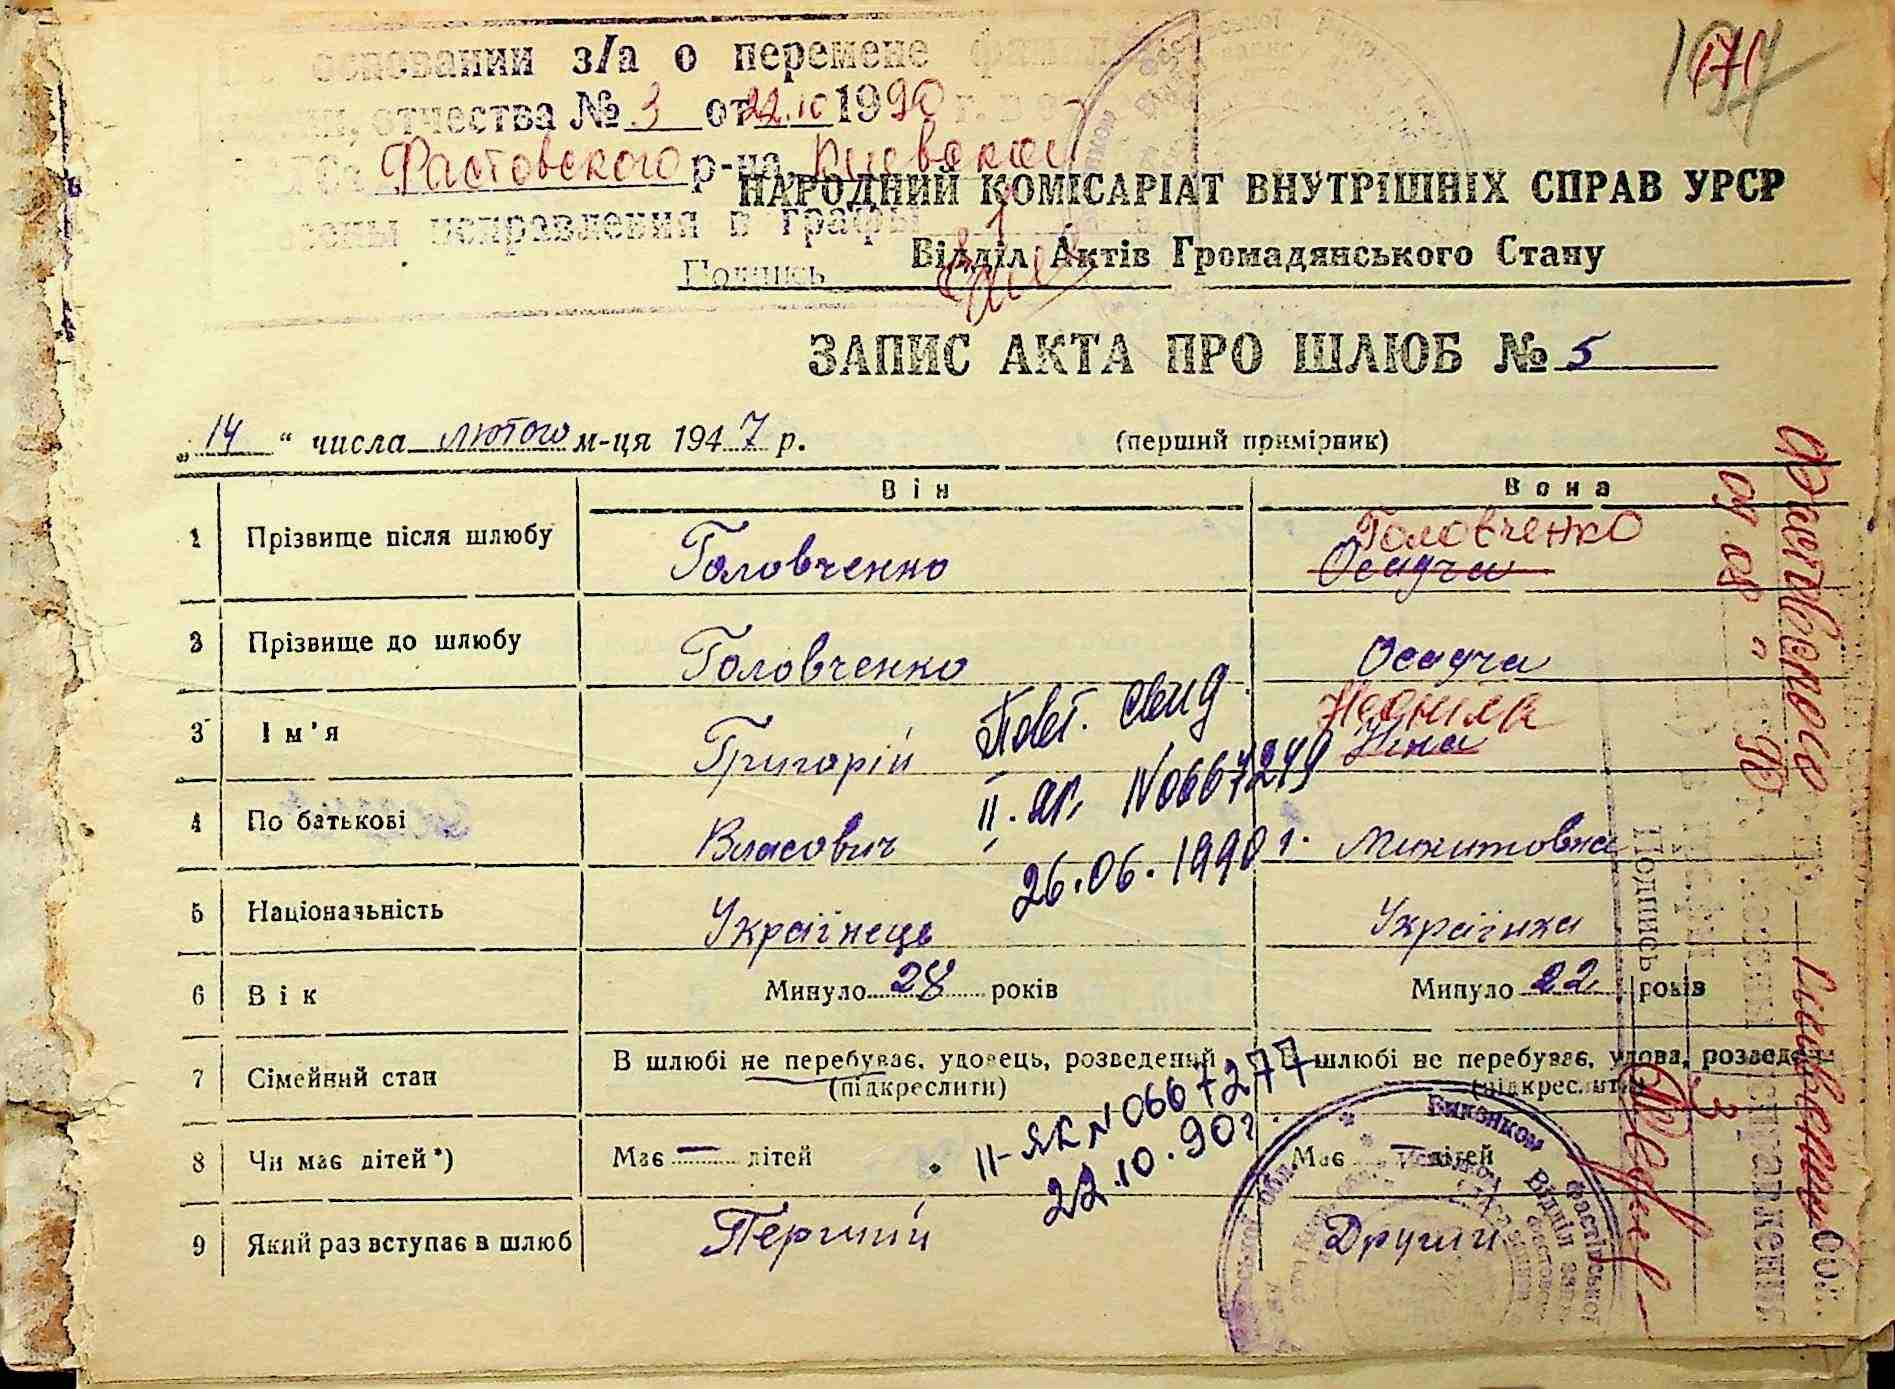 основании з/а о перемене
отчества № 3 от 22.10 1990 г.
Фастовского р-на Киевской
исправления в графы 1
Подпись
171
НАРОДНИЙ КОМІСАРІАТ ВНУТРІШНІХ СПРАВ УРСР
Відділ Актів Громадянського Стану
ЗАПИС АКТА ПРО ШЛЮБ № 5
„ 14 “ числа лютого м-ця 1947 р. (перший примірник)
Він Вона
1 Прізвище після шлюбу Головченко Осадча Головченко
2 Прізвище до шлюбу Головченко Осадча
3 Ім'я Григорій Ніна
4 По батькові Власович Микитовна
5 Національність Українець Українка
6 Вік Минуло 28 років Минуло 22 років
7 Сімейний стан В шлюбі не перебуває, удовець, розведений (підкреслити) В шлюбі не перебуває, удова, розведен (підкреслити)
8 Чи має дітей*) Має — дітей Має — дітей
9 Який раз вступає в шлюб Перший Другий
Повт. свид
II-яг. N0667279
26.06.1990 г.
II-ЯК N 0667277
22.10.90г.
Фастовского
Подпись
3
обл.
Виконком Фастівської
Відділ